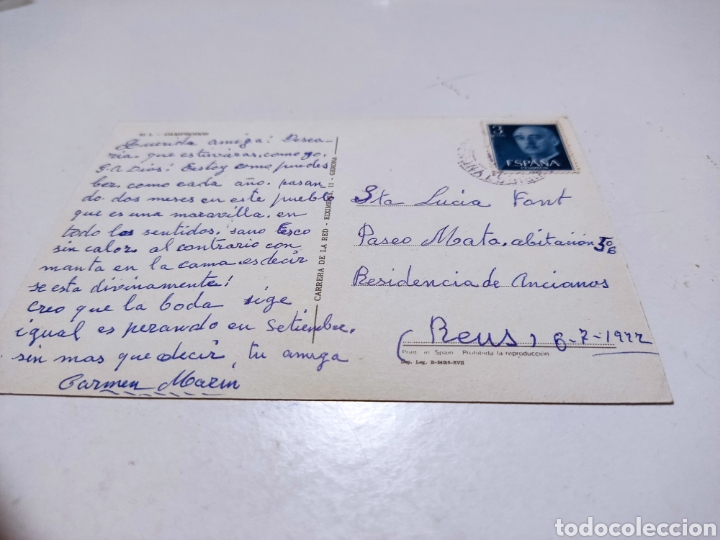 Querida amiga: Desea-
ria, que estuvieras, como yo.
G.a Dios! Estoy como puedes
ber, como cada año. pasan
do dos meses en este pueblo
que es una maravilla, en
todo los sentidos, sano fresco
sin calor al contrario con
manta en la cama, es decir
se esta divinamente!
Creo que la boda sige
igual es perando en Setiembre.
sin mas que decir, tu amiga
Carmen Marin
CARRERA DE LA RED - 11 - GERONA
3
ESPAÑA
Sta Lucia Font
Paseo Mata, abitación 30
Residencia de Ancianos
(Reus, 6-7-1977
Print. in Spain Prohibida la reproducción
Dep. Leg. B-XVII
todocoleccion
todocoleccion.net